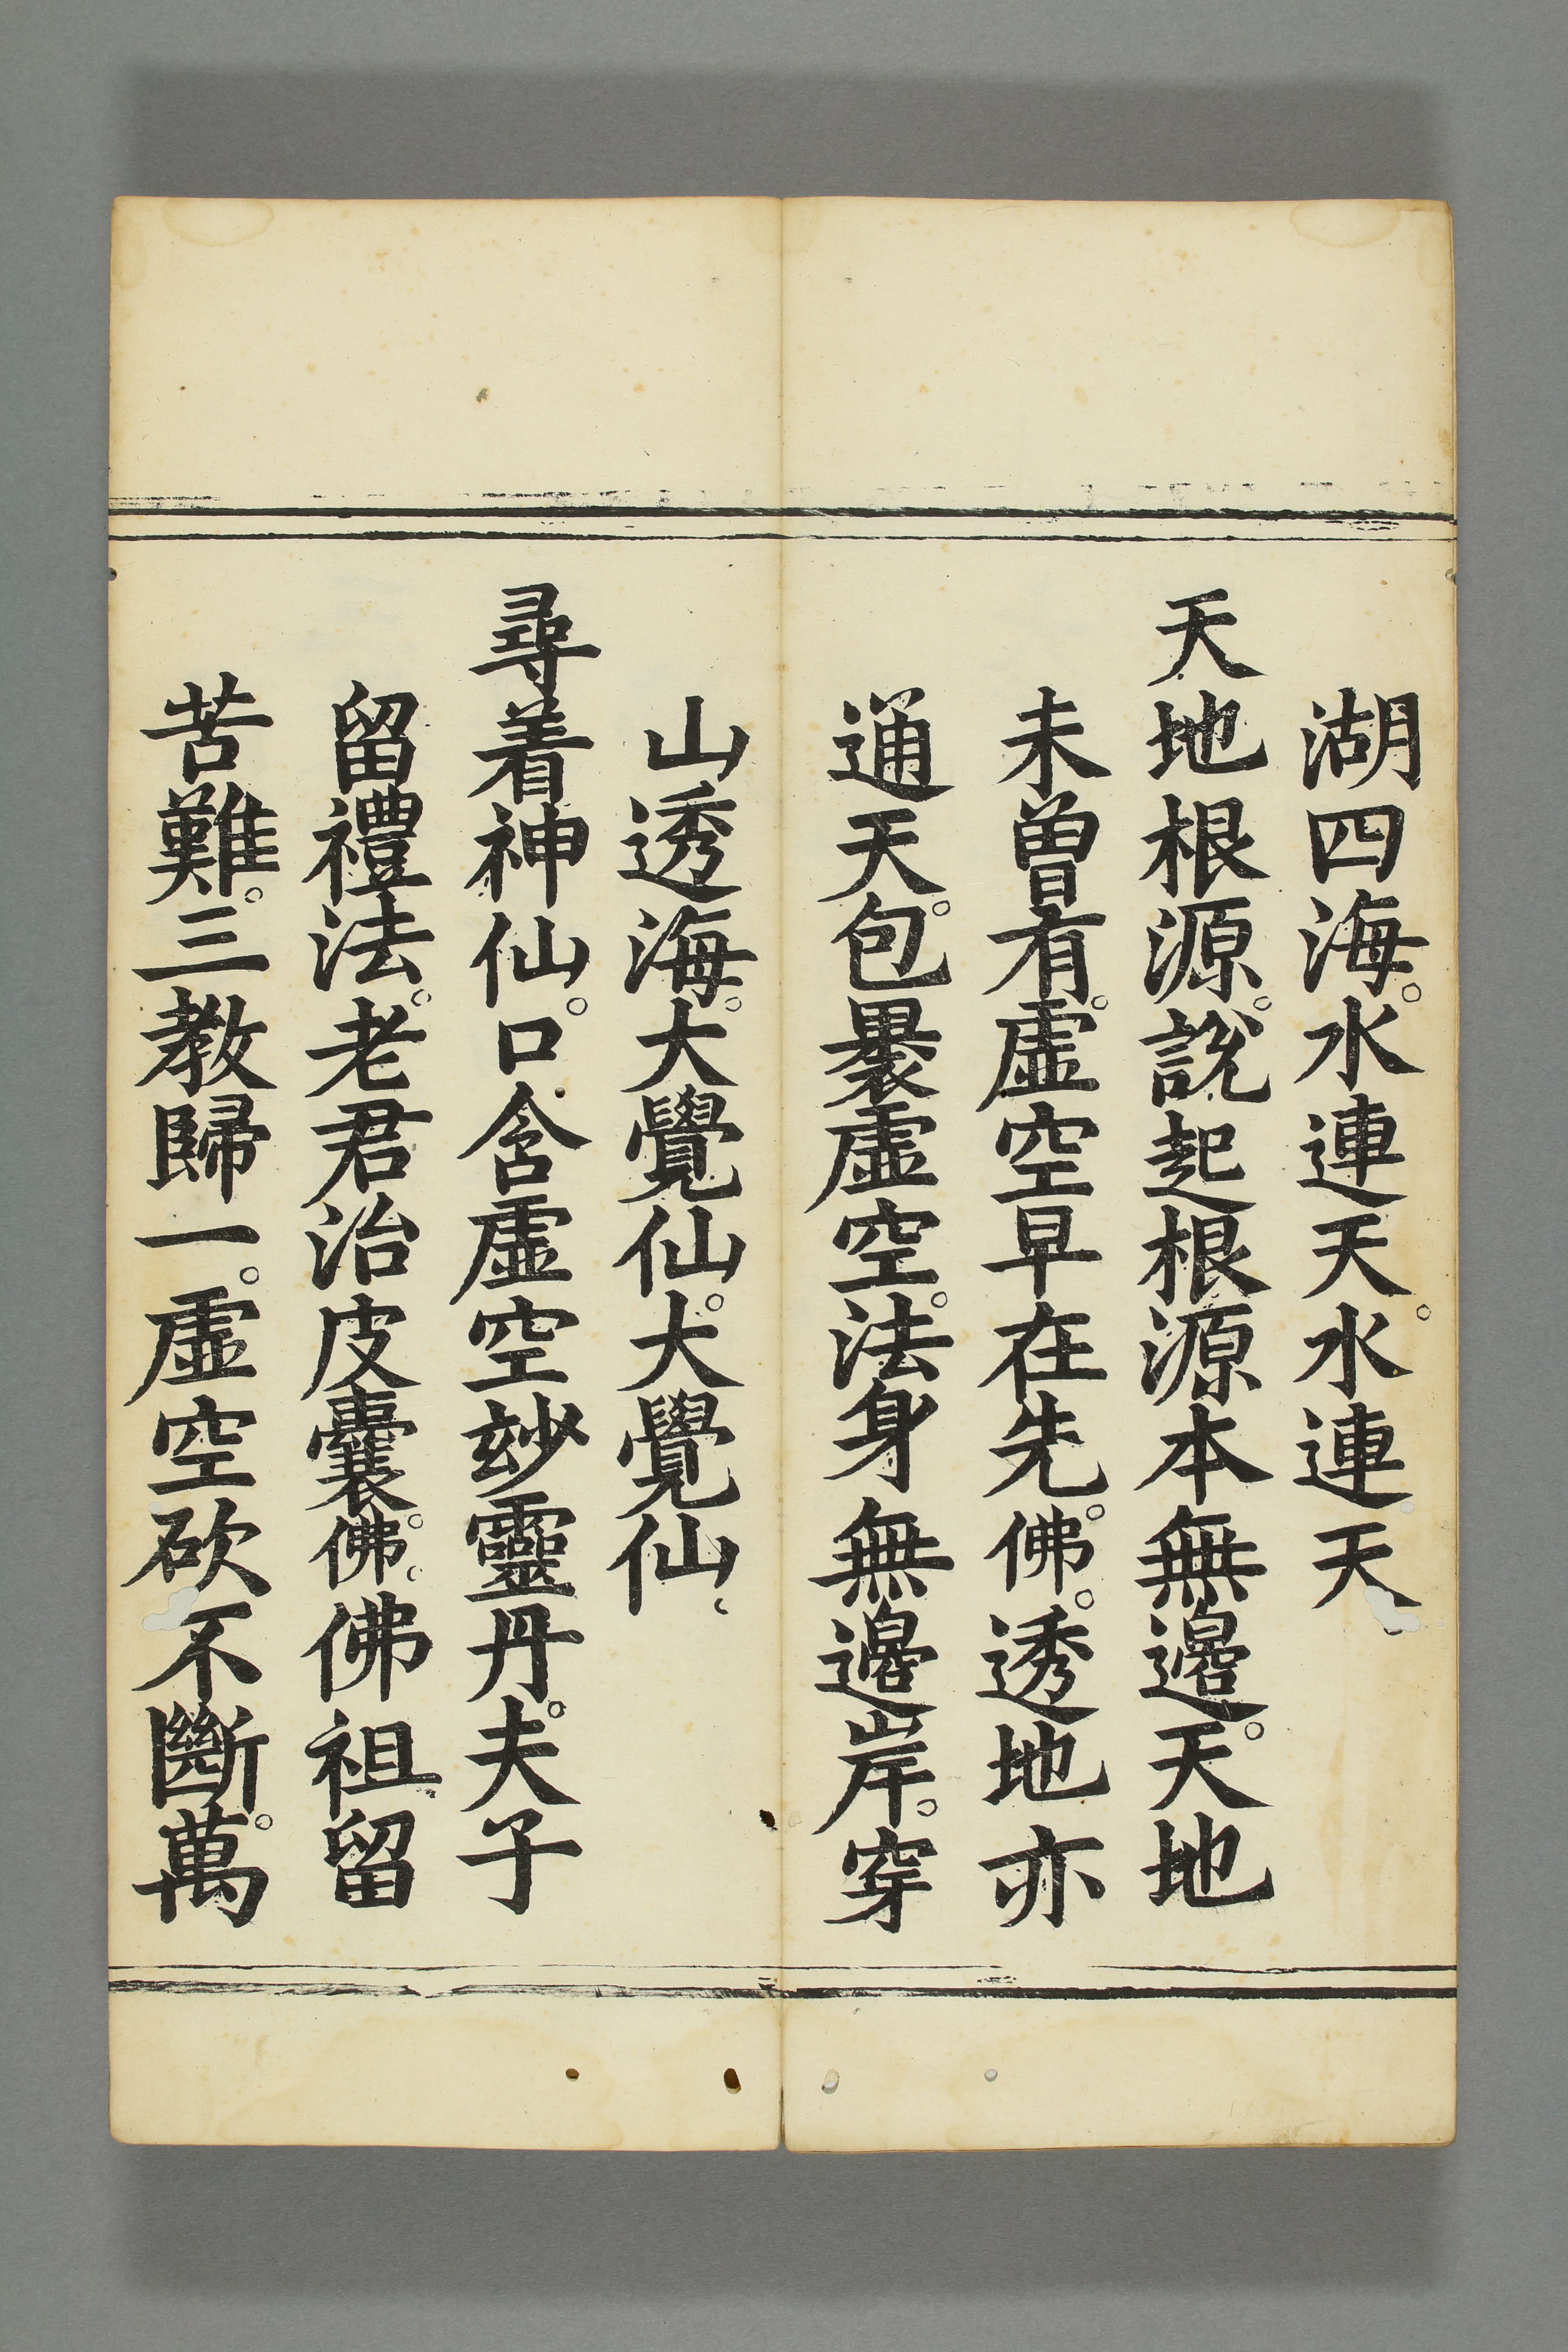 湖四海。水連天。水連天
天地根源。說起根源本無邊。天地
未曾有。虛空早在先。佛。透地亦
通天。包褁虛空。法身無邊岸。穿
山透海。大覺仙。大覺仙、
尋着神仙。口含虛空玅靈丹。夫子
留禮法。老君治皮囊。佛。佛祖留
苦難。三教歸一。虛空砍不斷。萬